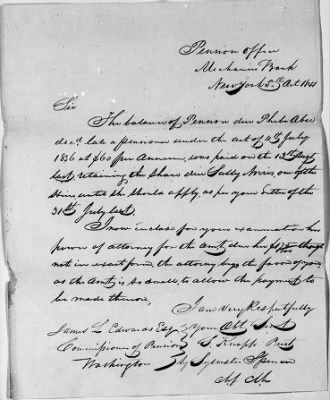 Pension Office
Mechanics Bank
New York 5th Oct 1841
Sir
The balance of Pension due Phebe Aber
decd. late a pensioner under the act of 4th July
1836 at $60 per Annum, was paid on the 13th
last, retaining the share due Sally Norris, one of the
Heirs until she should apply, as per your letter of the
31st July last.
I now Enclose for your examination her
power of attorney for the Amt. due her, though
not in exact form, the attorney begs the favor of you
as the Amt is so small, to allow the payment to
be made thereon,
I am Very Respectfully
James L Edwards Esq Your Obt Servt
Commissioner of Pensions S. Knapp Prest
Washington By Sylvester Spencer